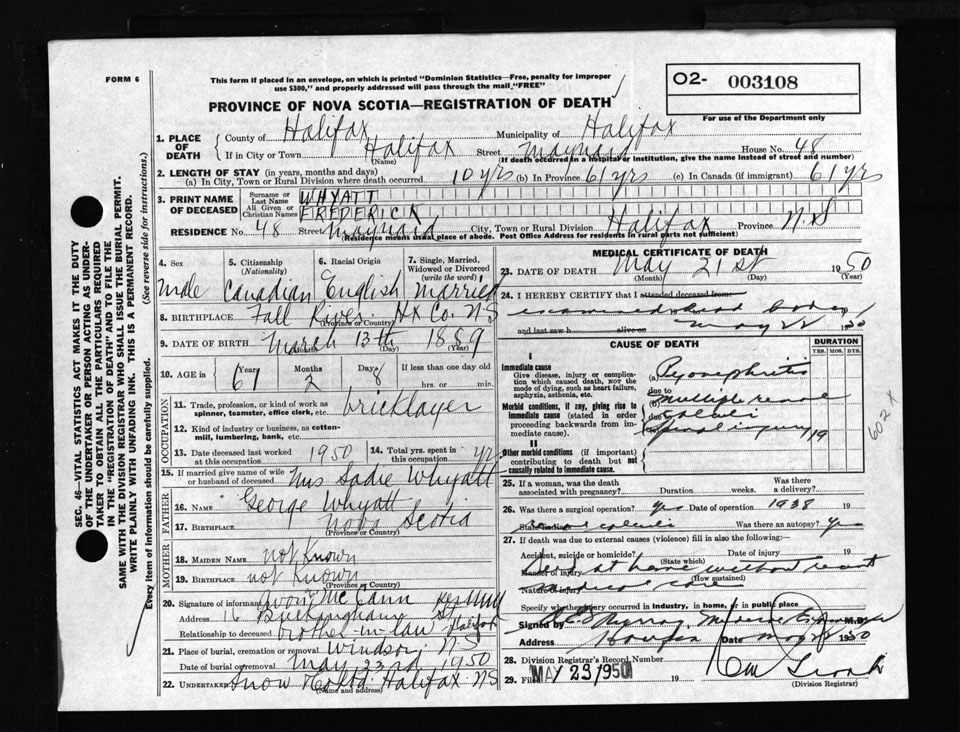 FORM 6
This form if placed in an envelope, on which is printed "Dominion Statistics—Free, penalty for improper
use $300," and properly addressed will pass through the mail, "FREE"
O2- 003108
For use of the Department only
PROVINCE OF NOVA SCOTIA—REGISTRATION OF DEATH
1. PLACE OF DEATH
County of Halifax Municipality of Halifax
If in City or Town Halifax Street Maynard House No. 48
(Name) (If death occurred in a hospital or institution, give the name instead of street and number)
2. LENGTH OF STAY (in years, months and days)
(a) In City, Town or Rural Division where death occurred 10 yrs (b) In Province 61 yrs (c) In Canada (if immigrant) 61 yrs
3. PRINT NAME OF DECEASED
Surname or Last Name WHYATT
All Given or Christian Names FREDERICK
RESIDENCE No. 48 Street Maynard City, Town or Rural Division Halifax Province N.S
(Residence means usual place of abode. Post Office Address for residents in rural parts not sufficient)
4. Sex
male
5. Citizenship (Nationality)
Canadian
6. Racial Origin
English
7. Single, Married, Widowed or Divorced (write the word)
Married
8. BIRTHPLACE Fall River Hx Co. N.S
(Province or Country)
9. DATE OF BIRTH March 13th 1889
(Month) (Day) (Year)
10. AGE in Years Months Days If less than one day old
61 2 8 hrs. or min.
OCCUPATION
11. Trade, profession, or kind of work as spinner, teamster, office clerk, etc. bricklayer
12. Kind of industry or business, as cotton-mill, lumbering, bank, etc.
13. Date deceased last worked at this occupation 1950
14. Total yrs. spent in this occupation yr
15. If married give name of wife or husband of deceased Mrs Sadie Whyatt
FATHER
16. Name George Whyatt
17. Birthplace Nova Scotia
(Province or Country)
MOTHER
18. MAIDEN NAME not Known
19. BIRTHPLACE not Known
(Province or Country)
20. Signature of informant McCann
Address 16 Buckingham St Halifax
Relationship to deceased brother-in-law
21. Place of burial, cremation or removal Windsor N.S
Date of burial or removal May 23rd 1950
22. Undertaker Snow Co Ltd. Halifax NS
(Name and address)
MEDICAL CERTIFICATE OF DEATH
23. DATE OF DEATH May 21st 1950
(Month) (Day) (Year)
24. I HEREBY CERTIFY that I attended deceased from
examined dead body
and last saw h alive on May 22 1950
CAUSE OF DEATH
DURATION
YRS. MOS. DYS.
I
Immediate cause
Give disease, injury or complication which caused death, NOT the mode of dying, such as heart failure, asphyxia, asthenia, etc.
(a) Pyonephritis
due to
Morbid conditions, if any, giving rise to immediate cause (stated in order proceeding backwards from immediate cause).
(b) multiple renal
due to calculi
(c) Spinal injury 19
II
Other morbid conditions (if important) contributing to death but not causally related to immediate cause.
602 X
25. If a woman, was the death associated with pregnancy? Duration weeks. Was there a delivery?
26. Was there a surgical operation? Yes Date of operation 1938 19
State findings renal calculi Was there an autopsy? Yes
27. If death was due to external causes (violence) fill in also the following:
Accident, suicide or homicide? Date of injury 19
(State which)
Dead at home without recent
Manner of injury
(How sustained)
medical care
Nature of injury
Specify whether injury occurred in industry, in home, or in public place
Signed by Murray, Medical Examiner M.D.
Address Halifax Date May 1950
28. Division Registrar's Record Number
29. Filed MAY 23 1950 19
(Division Registrar)
SEC. 46—VITAL STATISTICS ACT MAKES IT THE DUTY
OF THE UNDERTAKER OR PERSON ACTING AS UNDER-
TAKER TO OBTAIN ALL THE PARTICULARS REQUIRED
IN THE "REGISTRATION OF DEATH" AND TO FILE THE
SAME WITH THE DIVISION REGISTRAR WHO SHALL ISSUE THE BURIAL PERMIT.
WRITE PLAINLY WITH UNFADING INK. THIS IS A PERMANENT RECORD.
Every item of information should be carefully supplied. (See reverse side for instructions.)